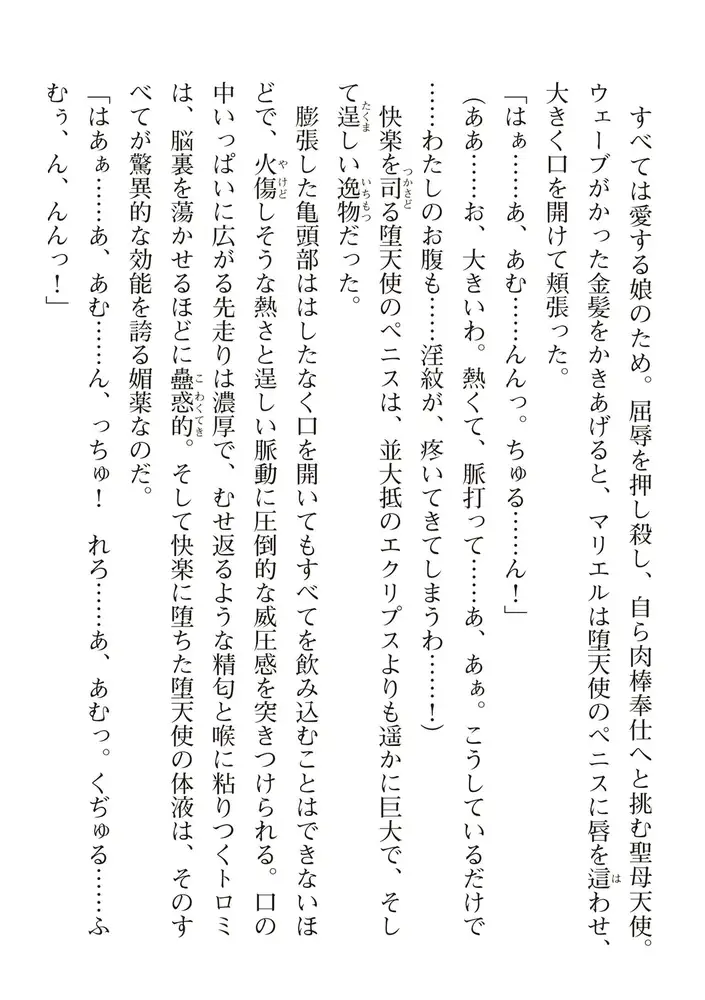 すべては愛する娘のため。屈辱を押し殺し、自ら肉棒奉仕へと挑む聖母天使。
ウェーブがかった金髪をかきあげると、マリエルは堕天使のペニスに唇を這わせ、
大きく口を開けて頬張った。
「はぁ……あ、あむ……んんっ。ちゅる……ん！」
(ああ……お、大きいわ。熱くて、脈打って……あ、あぁ。こうしているだけで
……わたしのお腹も……淫紋が、疼いてきてしまうわ……！)
快楽を司る堕天使のペニスは、並大抵のエクリプスよりも遥かに巨大で、そし
て逞しい逸物だった。
膨張した亀頭部ははしたなく口を開いてもすべてを飲み込むことはできないほ
どで、火傷しそうな熱さと逞しい脈動に圧倒的な威圧感を突きつけられる。口の
中いっぱいに広がる先走りは濃厚で、むせ返るような精匂と喉に粘りつくトロミ
は、脳裏を蕩かせるほどに蠱惑的。そして快楽に堕ちた堕天使の体液は、そのす
べてが驚異的な効能を誇る媚薬なのだ。
「はあぁ……あ、あむ……ん、っちゅ！　れろ……あ、あむっ。くぢゅる……ふ
むぅ、ん、んんっ！」